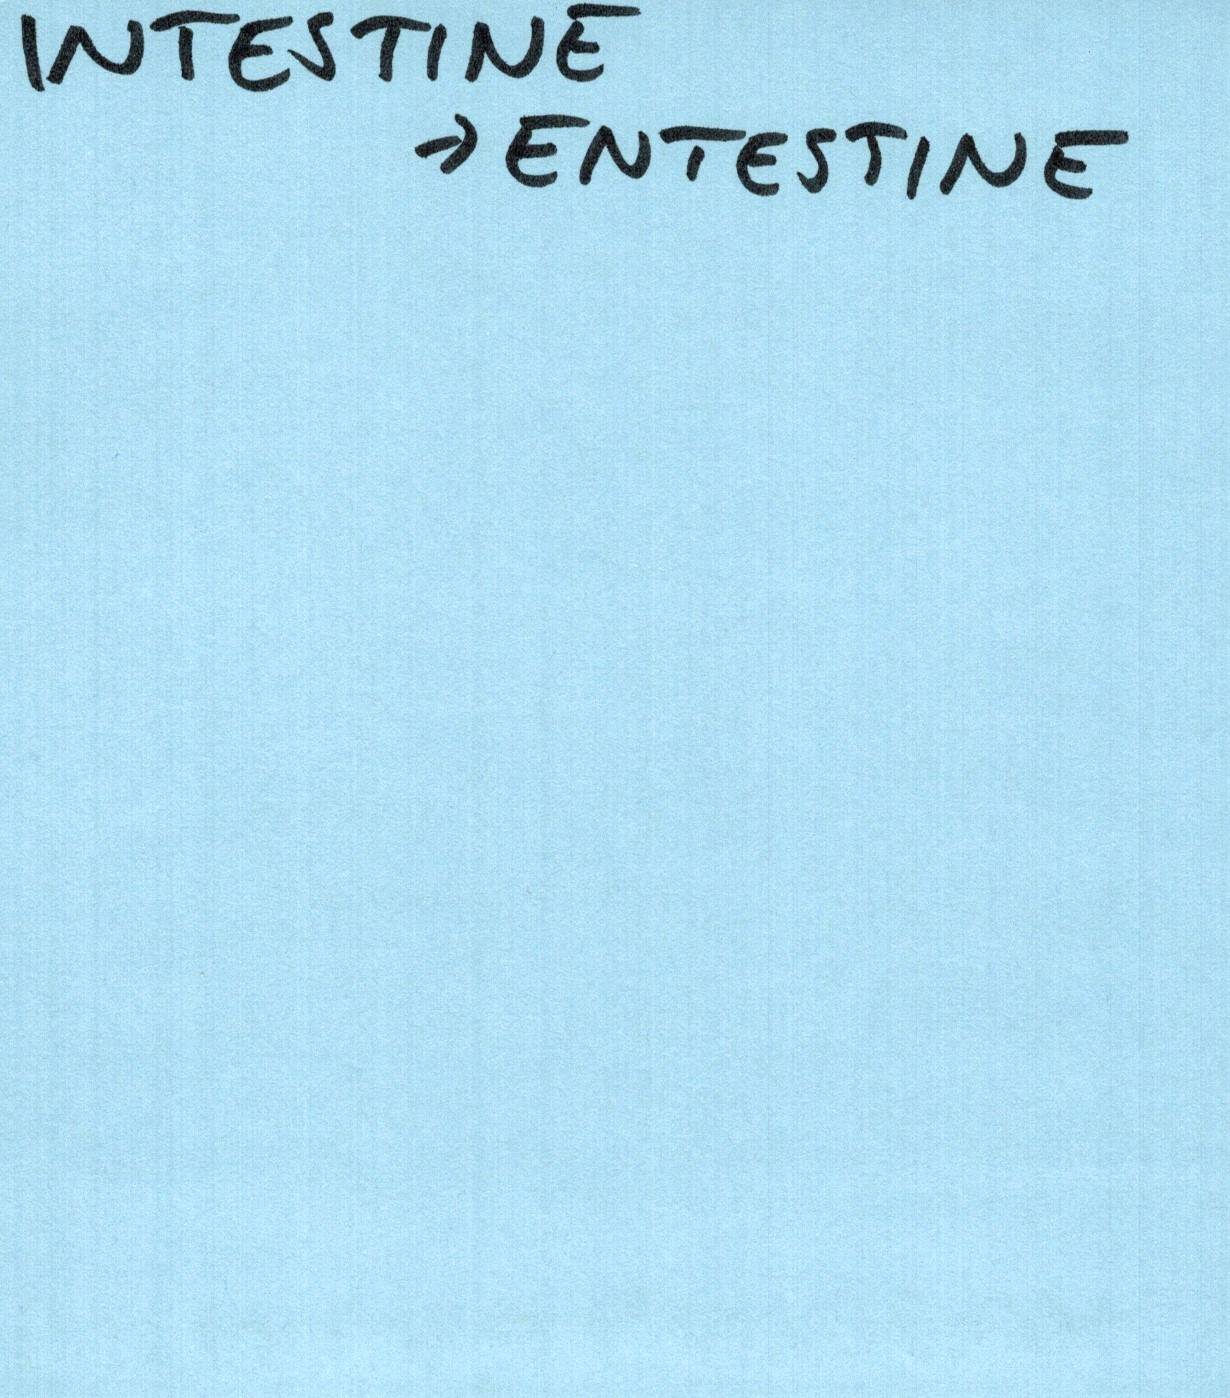 INTESTINE
→ ENTESTINE